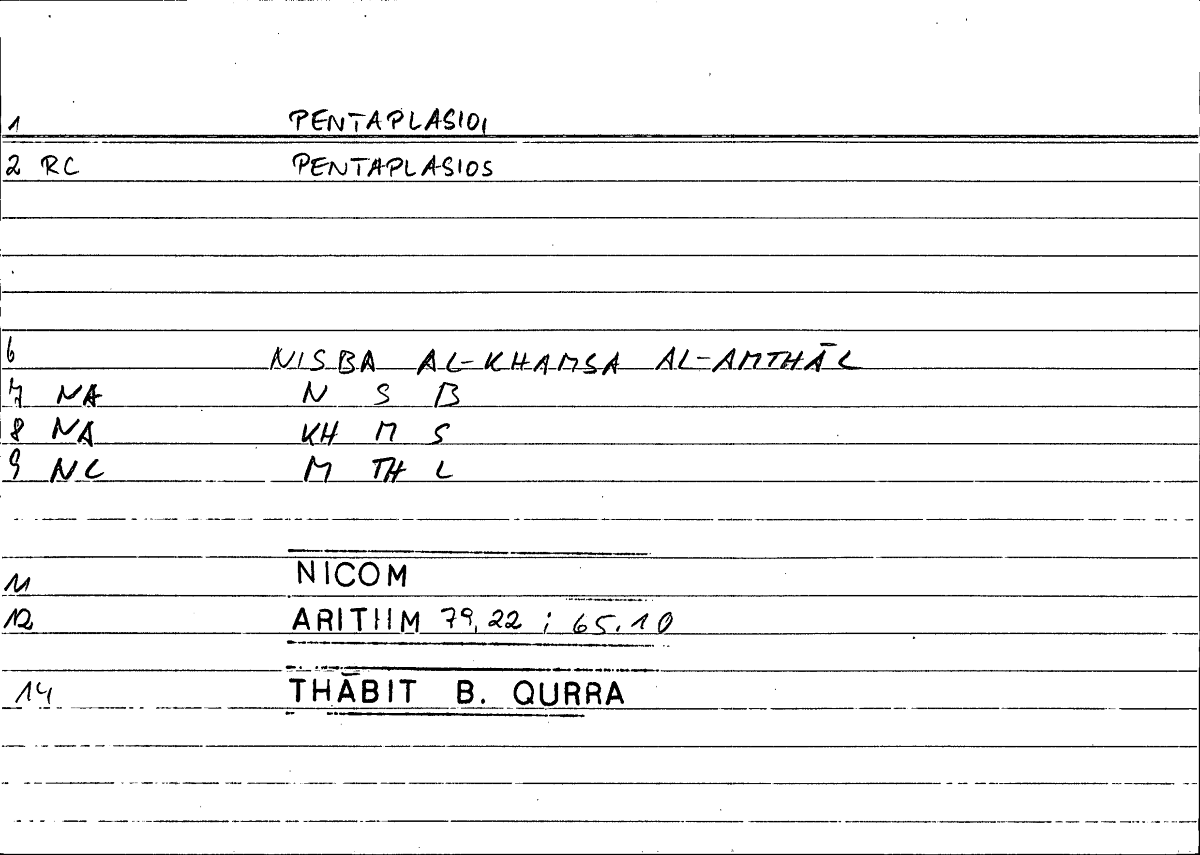 1 PENTAPLASIOI
2 RC PENTAPLASIOS
6 NISBA AL-KHAMSA AL-AMTHĀL
7 NA N S B
8 NA KH M S
9 NC M TH L
11 NICOM
12 ARITHM 79,22 ; 65.10
14 THĀBIT B. QURRA